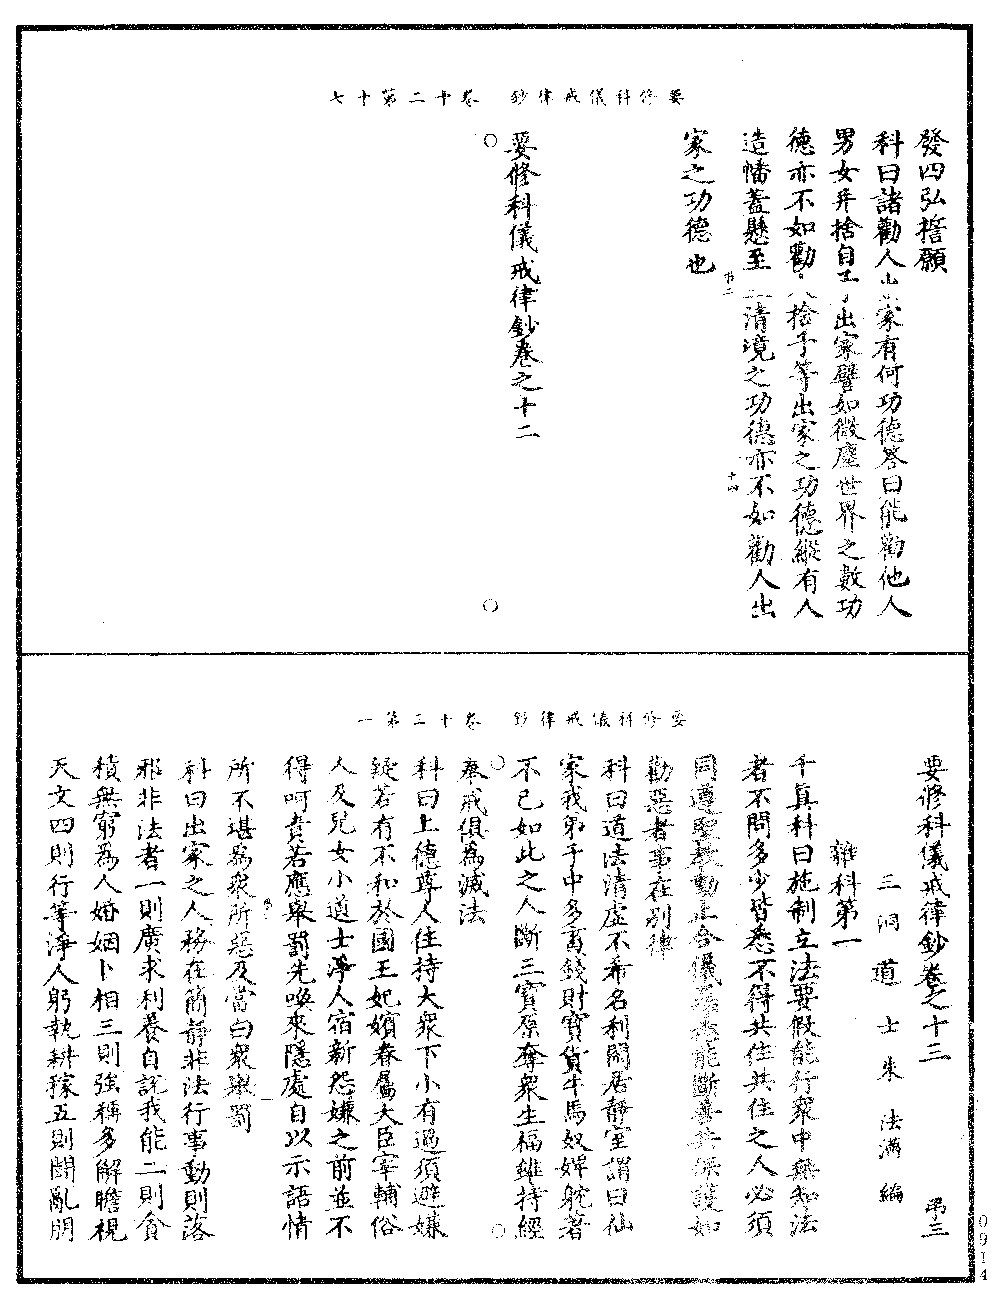 要修科儀戒律鈔　卷十二第十七
發四弘擔願
科曰諸勸人出家有何功德答曰能勸他人
男女并捨自己身出家譬如微塵世界之數功
德亦不如勸人捨子等出家之功德縱有人
造幡蓋懸至上清境之功德亦不如勸人出
家之功德也
要修科儀戒律鈔卷之十二
要修科儀戒律鈔　卷十三第一
要修科儀戒律鈔卷之十三　弔三
三洞道士朱法滿編
雜科第一
千真科曰施制立法要假能行眾中無知法
者不問多少皆悉不得共住共住之人必須
同遵聖教動止合儀為惡能斷善共保護如
勸惡者事在別律
科曰道法清虛不希名利閑居靜室謂曰仙
家我弟子中多畜錢財寶貨牛馬奴婢躭著
不已如此之人斷三寶原奪眾生福雖持經
奉戒俱為滅法
科曰上德尊人住持大眾下小有過須避嫌
疑若有不和於國王妃嬪眷屬大臣宰輔俗
人及兒女小道士淨人宿新怨嫌之前並不
得呵責若應舉罰先喚來隱處自以示語情
所不堪為眾所惡及當白眾舉罰
科曰出家之人務在簡靜非法行事動則落
邪非法者一則廣求利養自說我能二則貪
積無窮為人婚姻卜相三則強稱多解瞻視
天文四則行等淨人躬執耕稼五則鬬亂朋
0914